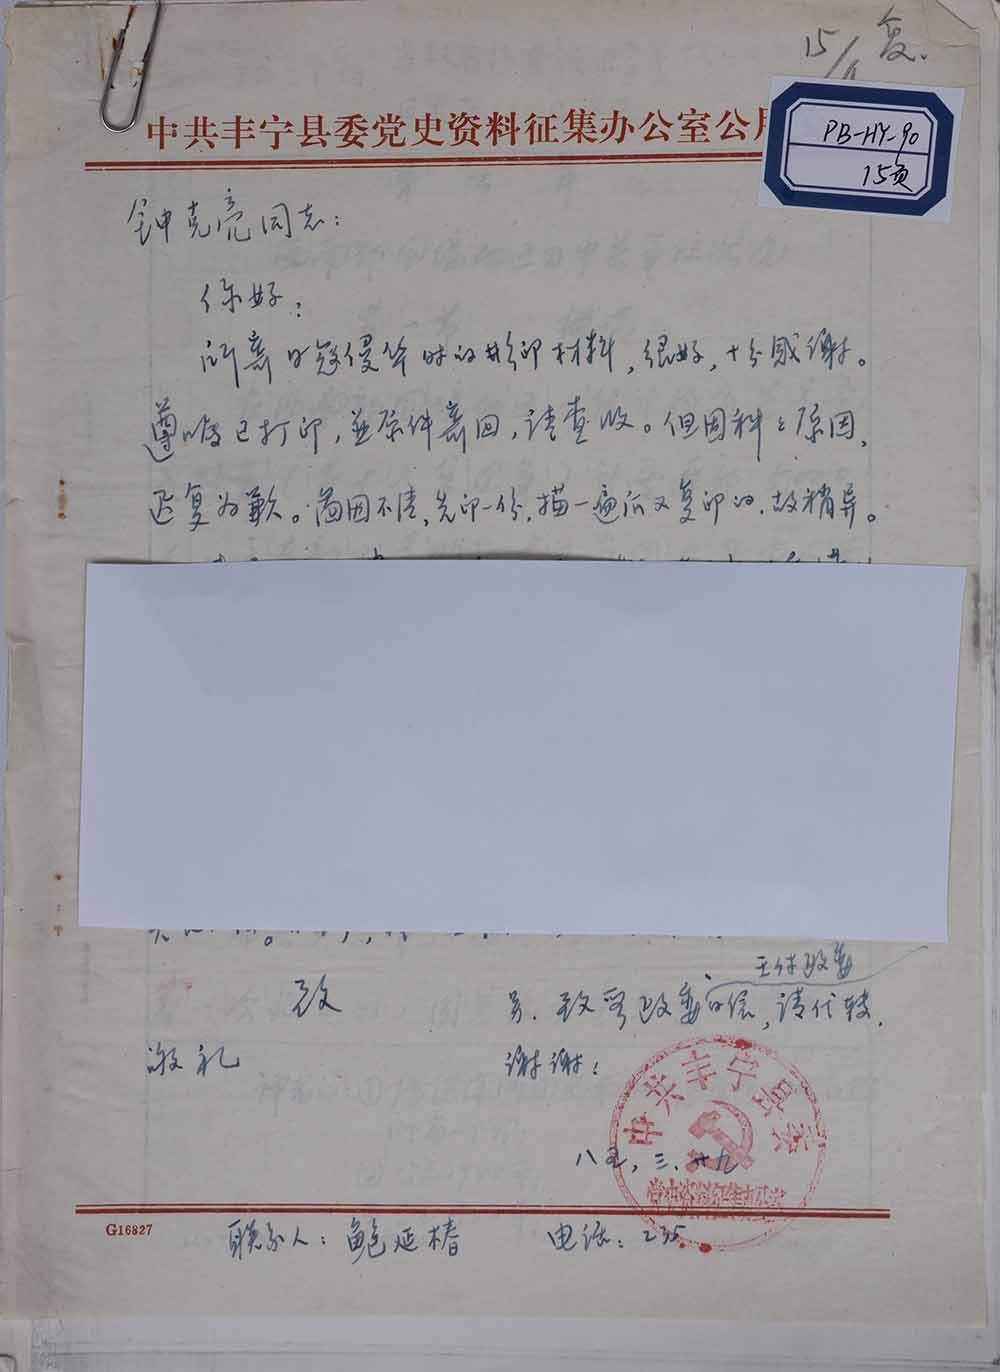 15/ 复.
中共丰宁县委党史资料征集办公室公用
PB-HY-90
15页
钟克亮同志：
你好：
所寄日寇侵华时的影印材料，很好，十分感谢。
遵嘱已打印，并原件寄回，请查收。但因种之原因，
迟复为歉。图因不清，先印一份，描一遍后又复印的，故稍异。
王付政委
致
另．致 政委的信，请代转．
敬礼
谢谢：
中共丰宁县委
党史资料征集办公室
八五，三．廿九
G16827
联系人：鲍延椿 电话：235